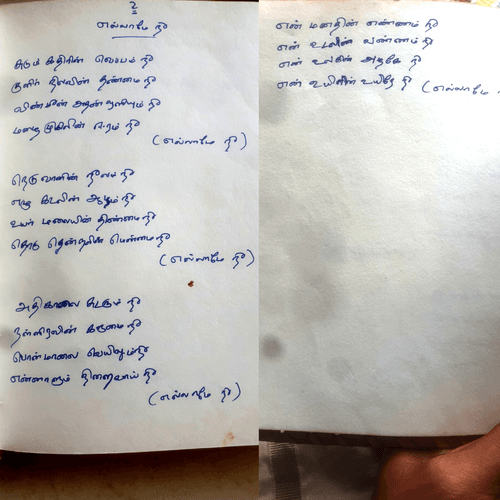 2
எல்லாமே நீ
சுடும் கதிரின் வெப்பம் நீ
குளிர் நிலவின் தண்மை நீ
விண்மீன் அதன் துளியும் நீ
மழை முகிலின் ஈரம் நீ
(எல்லாமே நீ)
நெடு வானின் நீலம் நீ
எழு கடலின் ஆழம் நீ
உயர் மலையின் திண்மை நீ
தொடு தென்றலின் மென்மை நீ
(எல்லாமே நீ)
அதிகாலை சுடரும் நீ
நள்ளிரவின் கருமை நீ
பொன்மாலை வெயிலும் நீ
எந்நாளும் நினைவாய் நீ
(எல்லாமே நீ)
என் மனதின் எண்ணம் நீ
என் உடலின் வண்ணம் நீ
என் உலகின் அழகே நீ
என் உயிரின் உயிரே நீ (எல்லாமே